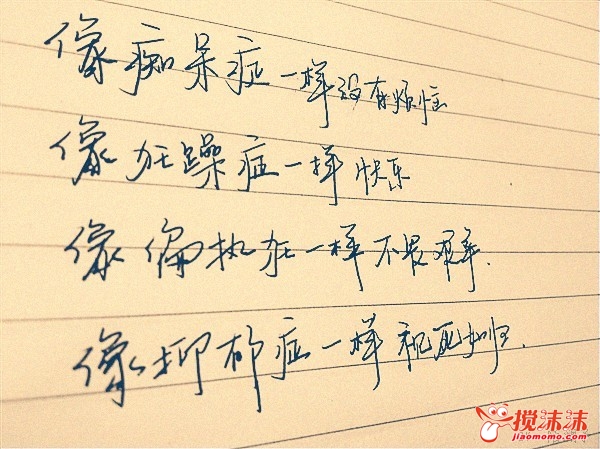 像痴呆症一样没有烦恼
像狂躁症一样快乐
像偏执症一样不畏艰辛.
像抑郁症一样视死如归.
搅沫沫
jiaomomo.com